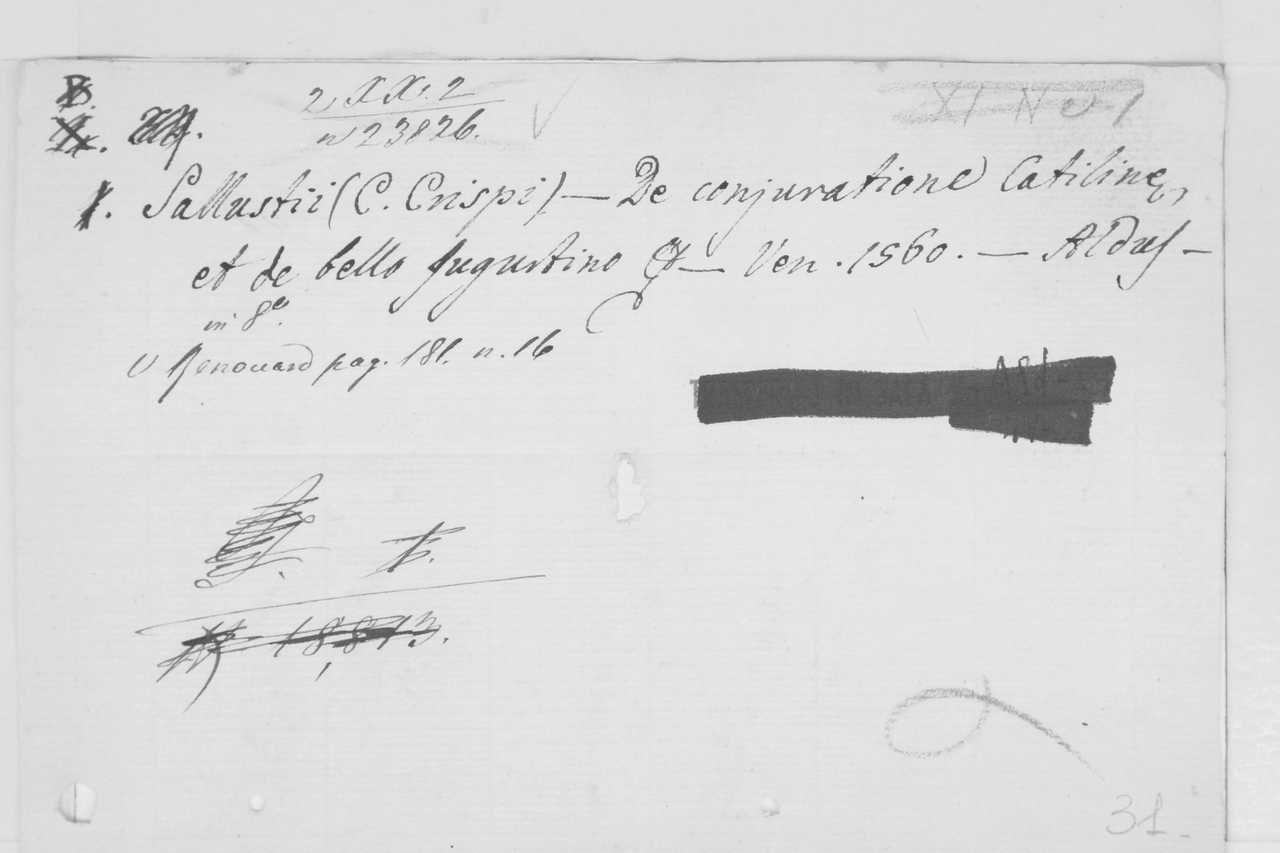 2 XX. 2
n 23826.
XI N 01
1. Sallustii (C. Crispi) — De conjuratione Catiline,
et de bello Jugurtino &— Ven. 1560. — Aldus —
in 8º.
V Renouard pag. 181. n. 16
18,813.
31